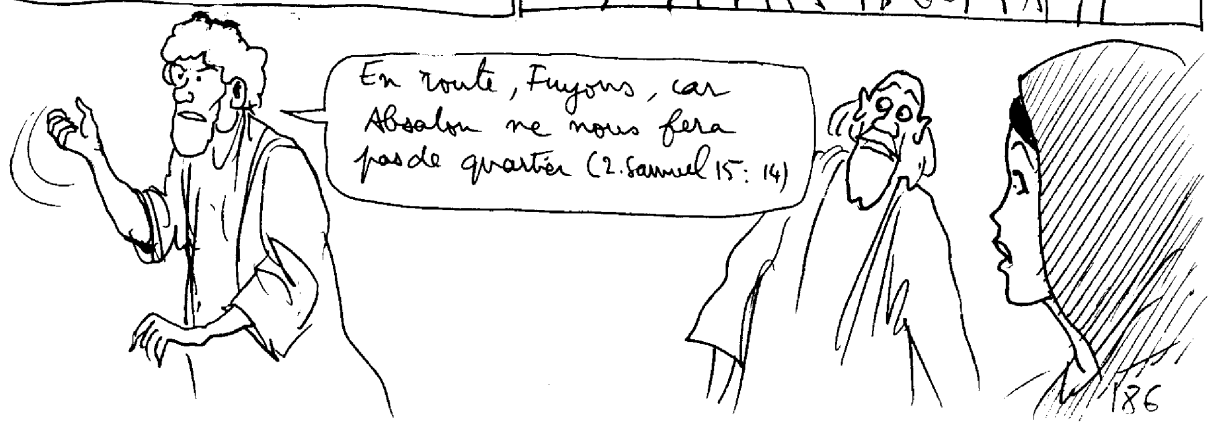 En route, Fuyons, car
Absalon ne nous fera
pas de quartier (2. Samuel 15: 14)
186